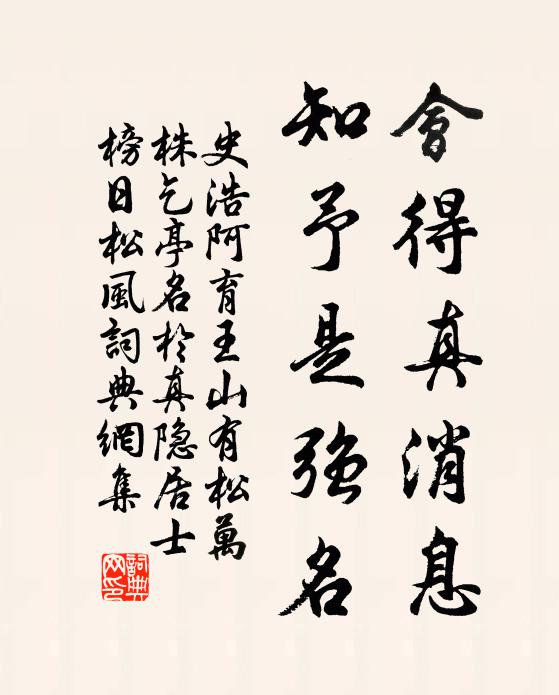 會得真消息
知予是強名
史浩阿育王山有松萬
株乞亭名於真隐居士
榜日松風詞典網集
詞典网印